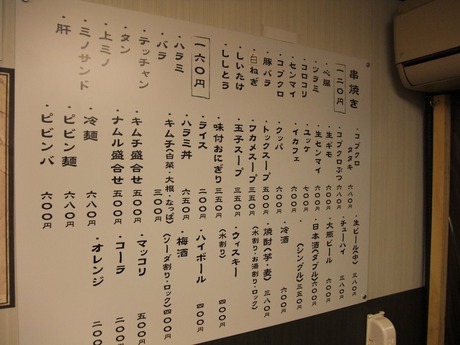 串焼き
一二〇円
・心臓
・ツラミ
・コロコリ
・センマイ
・コブクロ
・豚バラ
・白ねぎ
・しいたけ
・ししとう
一六〇円
・ハラミ
・バラ
・テッチャン
・タン
・上ミノ
・ミノサンド
・肝
・コブクロ
タタキ 六八〇円
・コブクロぶつ 六八〇円
・生ギモ 六〇〇円
・生センマイ 六〇〇円
・ユッケ 七〇〇円
・イカフェ 六〇〇円
・クッパ 六〇〇円
・トックスープ 五〇〇円
・ワカメスープ 三五〇円
・玉子スープ 三五〇円
・味付おにぎり 三五〇円
・ライス 二〇〇円
・ハラミ丼 五〇〇円
・キムチ(白菜・大根・なっぱ) 三〇〇円
・キムチ盛合せ 五〇〇円
・ナムル盛合せ 五〇〇円
・冷麺 六八〇円
・ビビン麺 六八〇円
・ビビンバ 六〇〇円
・生ビール(中) 三八〇円
・チューハイ 三八〇円
・大瓶ビール 六〇〇円
・日本酒(ダブル) 六〇〇円
(シングル) 三五〇円
・冷酒 六〇〇円
・焼酎(芋・麦) 三八〇円
(水割り・お湯割り・ロック)
・ウィスキー 四〇〇円
(水割り)
・ハイボール 四〇〇円
・梅酒 四〇〇円
(ソーダ割り・ロック)
・マッコリ 五〇〇円
・コーラ 二〇〇円
・オレンジ 二〇〇